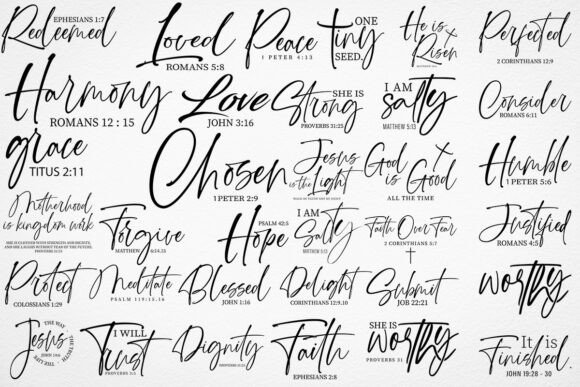 EPHESIANS 1:7
Redeemed
Loved
ROMANS 5:8
Peace
1 PETER 4:13
ONE
tiny
SEED.
He is
Risen
Perfected
2 CORINTHIANS 12:9
Harmony
ROMANS 12 : 15
Love
JOHN 3:16
SHE IS
Strong
PROVERBS 31:25
I AM
salty
MATTHEW 5:13
Consider
ROMANS 6:11
grace
TITUS 2:11
Chosen
1 PETER 2:9
Jesus
is the Light
God is Good
ALL THE TIME
Humble
1 PETER 5:6
Motherhood
is kingdom work
SHE IS CLOTHED WITH STRENGTH AND DIGNITY,
AND SHE LAUGHS WITHOUT FEAR OF THE FUTURE.
PROVERBS 31:25
Forgive
MATTHEW 6:14.15
PSALM 42:5
Hope
I AM
Salty
MATTHEW 5:13
Faith Over Fear
2 CORINTHIANS 5:7
Justified
ROMANS 4:5
Protect
COLOSSIANS 1:29
Meditate
PSALM 119:15.16
Blessed
JOHN 1:16
Delight
CORINTHIANS 12:9.10
Submit
JOB 22:21
worthy
THE WAY
THE TRUTH
THE LIFE
Jesus
JOHN 14:6
I WILL
Trust
PROVERBS 3:5
Dignity
Faith
EPHESIANS 2:8
SHE IS
worthy
PROVERBS 31
It is
Finished.
JOHN 19:28 - 30